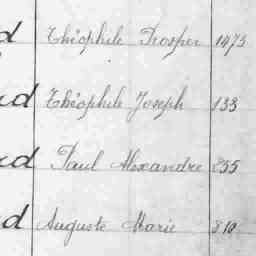 d Théophile Prosper 1473
ud Théophile Joseph 133
ud Paul Alexandre 835
d Auguste Marie 810